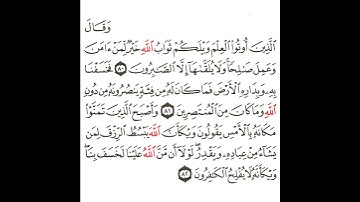 وَقَالَ
ٱلَّذِينَ أُوتُوا۟ ٱلْعِلْمَ وَيْلَكُمْ ثَوَابُ ٱللَّهِ خَيْرٌ لِّمَنْ ءَامَنَ
وَعَمِلَ صَٰلِحًا وَلَا يُلَقَّىٰهَآ إِلَّا ٱلصَّٰبِرُونَ ٨٠ فَخَسَفْنَا
بِهِۦ وَبِدَارِهِ ٱلْأَرْضَ فَمَا كَانَ لَهُۥ مِن فِئَةٍ يَنصُرُونَهُۥ مِن دُونِ
ٱللَّهِ وَمَا كَانَ مِنَ ٱلْمُنتَصِرِينَ ٨١ وَأَصْبَحَ ٱلَّذِينَ تَمَنَّوْا۟
مَكَانَهُۥ بِٱلْأَمْسِ يَقُولُونَ وَيْكَأَنَّ ٱللَّهَ يَبْسُطُ ٱلرِّزْقَ لِمَن
يَشَآءُ مِنْ عِبَادِهِۦ وَيَقْدِرُ ۖ لَوْلَآ أَن مَّنَّ ٱللَّهُ عَلَيْنَا لَخَسَفَ بِنَا ۖ
وَيْكَأَنَّهُۥ لَا يُفْلِحُ ٱلْكَٰفِرُونَ ٨٢